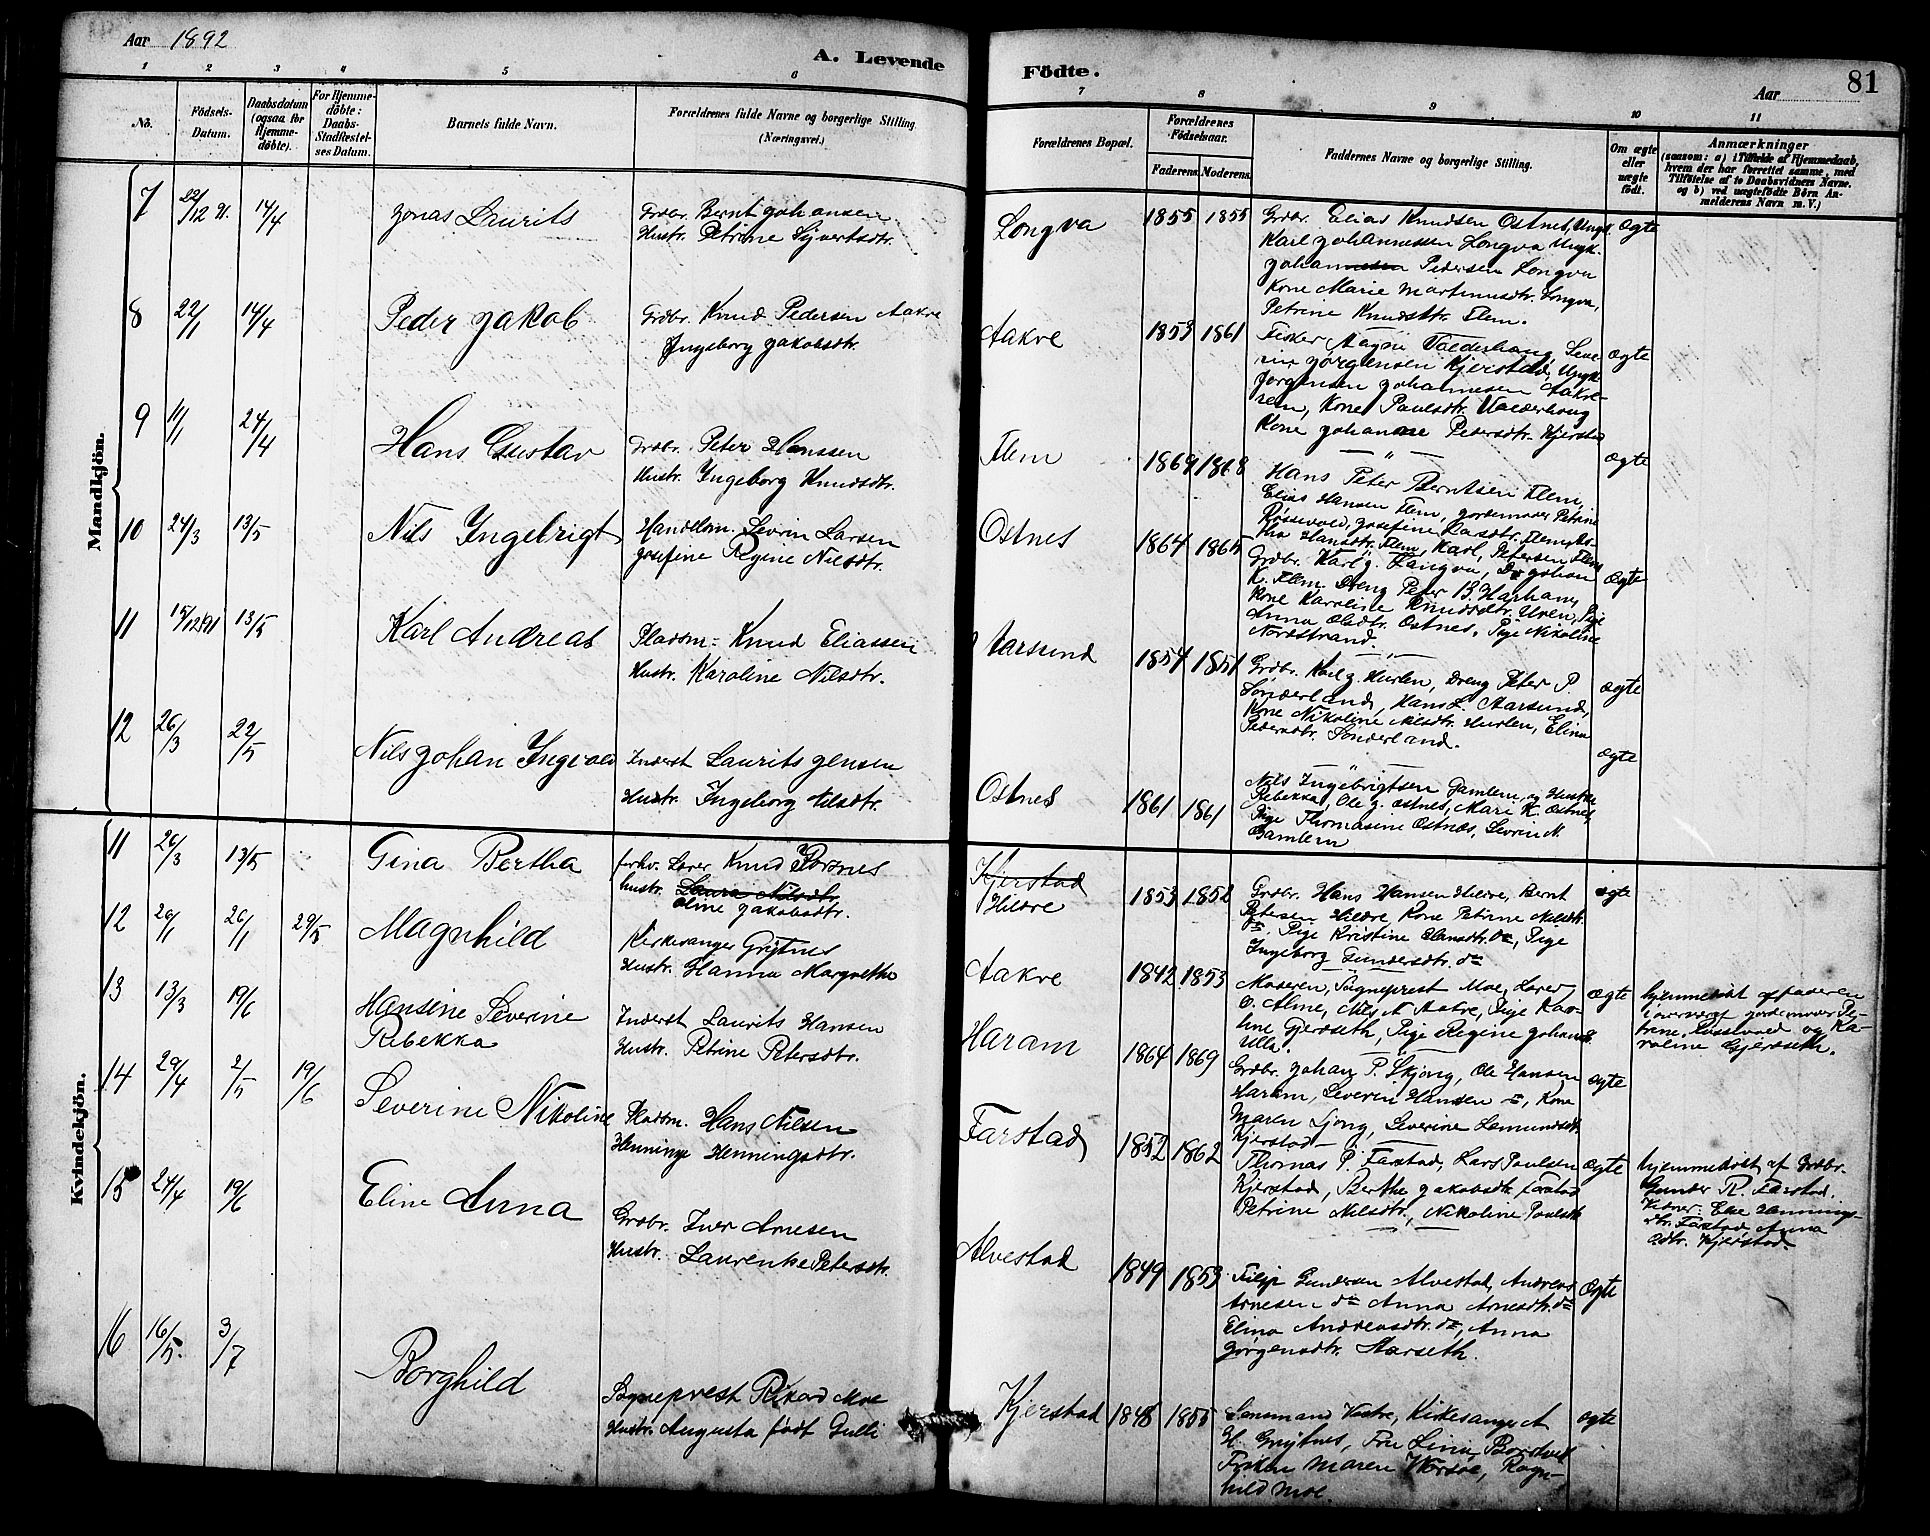 Aar 1892
A. Levende
Födte.
Aar
81
1 2 3 4 5 6
7 8 9 10 11
No.
Födsels-
Datum.
Daabsdatum
(ogsaa for
Hjemme-
döbte).
For Hjemme-
döbte:
Daabs-
Stadfæstel-
ses Datum.
Barnets fulde Navn.
Forældrenes fulde Navne og borgerlige Stilling
(Næringsvei.)
Forældrenes Bopæl.
Forældrenes
Födselsaar.
Faderens. Moderens.
Faddernes Navne og borgerlige Stilling.
Om ægte
eller
uægte
födt.
Anmærkninger
(saasom: a) i Tilfælde af Hjemmedaab,
hvem der har forrettet samme, med
Tilföielse af to Daabsvidners Navne.
og b) ved uægtefödte Börn An-
melderens Navn m. V.)
Mandkjön.
7 22/12 91. 14/4 Jonas Laurits
Grdbr. Bernt Johansen
Hustr. Petrine Sjvertsdtr.
Longva 1855 1855
Grdbr. Elias Knudsen Ostnes, Ungk.
Karl Johannessen Longva Ungk.
Johannesen Pedersen Longva
Kone Marie Martinusdtr. Longva,
Petrine Knudsdtr. Flem.
ægte
8 22/1 14/4 Peder Jakob
Grdbr. Knud Pedersen Aakre
Ingeborg Jakobsdtr.
Aakre 1853 1861
Fisker Magne Valderhaug, Seve-
rin Jørgensen Kjerstad, Ungk.
Jørgensen Johannesen Aakre-
rem, Kone Paulsdtr. Valderhaug
Kone Johanne Pedersdtr. Kjerstad
ægte
9 11/1 24/4 Hans Gustav
Grdbr. Peter Hanssen
Hustr. Ingeborg Knudsdtr.
Flem 1869 1868
Hans Peter Berntsen Flem,
Elias Hansen Flem, Jordemoder Petrine
Røssevold, Josefine Larsdtr. Flem,
Hansdtr. Flem, Karl Petersen Flem
ægte
10 24/3 13/5 Nils Ingebrigt
Handelsm. Sevrin Larsen
Josefine Regine Nilsdtr.
Ostnes 1864 1865
Grdbr. Karl J. Langva, Dr Johan
K. Flem Dreng Peter B. Harham,
Kone Karoline Knudsdtr. Uren, Pige
Anna Olsdtr. Ostnes, Pige Nikoline
Nordstrand.
ægte
11 15/12 91 13/5 Karl Andreas
Pladsm. Knud Eliassen
Hustr. Karoline Nilsdtr.
Aarsund 1854 1851
Grdbr. Karl J. Hurlen, Dreng Peter P.
Sönderland, Hans L. Aarsund,
Kone Nikoline Nilsdtr. Hurlen, Elina
Pedersdtr. Sonderland.
ægte
12 26/3 22/5 Nils Johan Ingvald
Inderst Laurits Jensen
Hustr. Ingeborg Nilsdtr.
Ostnes 1861 1861
Nils Ingebrigtsen Gamlem, og Hustru
Rebekka, Ole J. Ostnes, Mari K. Ostnes,
Pige Thomasine Ostnes, Sevrin N.
Gamlem
ægte
Kvindekjön.
11 26/3 13/5 Gina Bertha
forhv. Lærer Knud
hustr. Laura Nilsdtr.
Oline Jakobsdtr.
Kjerstad
Hildre 1853 1852
Grdbr. Hans Hansen Hildre, Bernt
Petersen Hildre, Kone Petrine Nilsdtr.
do. Pige Kristine Hansdtr. do, Pige
Ingeborg Gundersdtr. do
ægte
12 26/1 26/1 29/5 Magnhild
Kirkesanger Grytnes
Hustr. Hanna Margrethe
Aakre 1842 1853
Moderen, Sogneprest Moe, Lærer
O. Alme, Nils A Aakre, Pige Karo-
line Gjerdseth, Pige Regine Johans-
Ulla.
ægte
hjemmedöbt af faderen
i overvær af jordemoder Pe-
trine Røssevold og Ka-
roline Gjerdseth.
13 13/3 19/6 Hansine Severine
Rebekka
Inderst Laurits Hansen
Hustr. Petrine Petersdtr.
Haram 1864 1869
Grdbr. Johan P. Skjong, Ole Hansen
Haram, Severin Hansen do, Kone
Maren Ljong, Severine Lamundsdt.
Kjerstad
ægte
14 29/4 2/5 19/6 Severine Nikoline
Pladsm. Hans Nilsen
Henninge Henningsdtr.
Farstad 1852 1862
Thomas P. Farstad, Lars Paulsen
Kjerstad, Berthe Jakobsdtr. Farstad
Petrine Nilsdtr, Nikoline Paulsdtr
ægte
hjemmedöbt af Grdbr.
Gunder R. Farstad.
Vidner: Else Hennings-
dtr. Farstad Anna
Odtr. Kjerstad.
15 24/4 19/6 Eline Anna
Grdbr. Iver Arnesen
Hustr. Laurenke Petersdtr.
Alvestad 1849 1853
Filip Gundersen Alvestad, Andreas
Arnesen do Anna Arnesdtr. do
Elina Andreasdtr. do, Anna
Jörgensdtr. Harseth.
ægte
16 16/5. 3/7 Borghild
Sogneprest Rikard Moe
Hustr. Augusta født Gulli
Kjerstad 1848 1855
Lensmand Vestre, Kirkesanger A
H. Grytnes, Fru Lina Bordvik
Frøken Maren Worsöe, Ragn-
hild Moe.
ægte